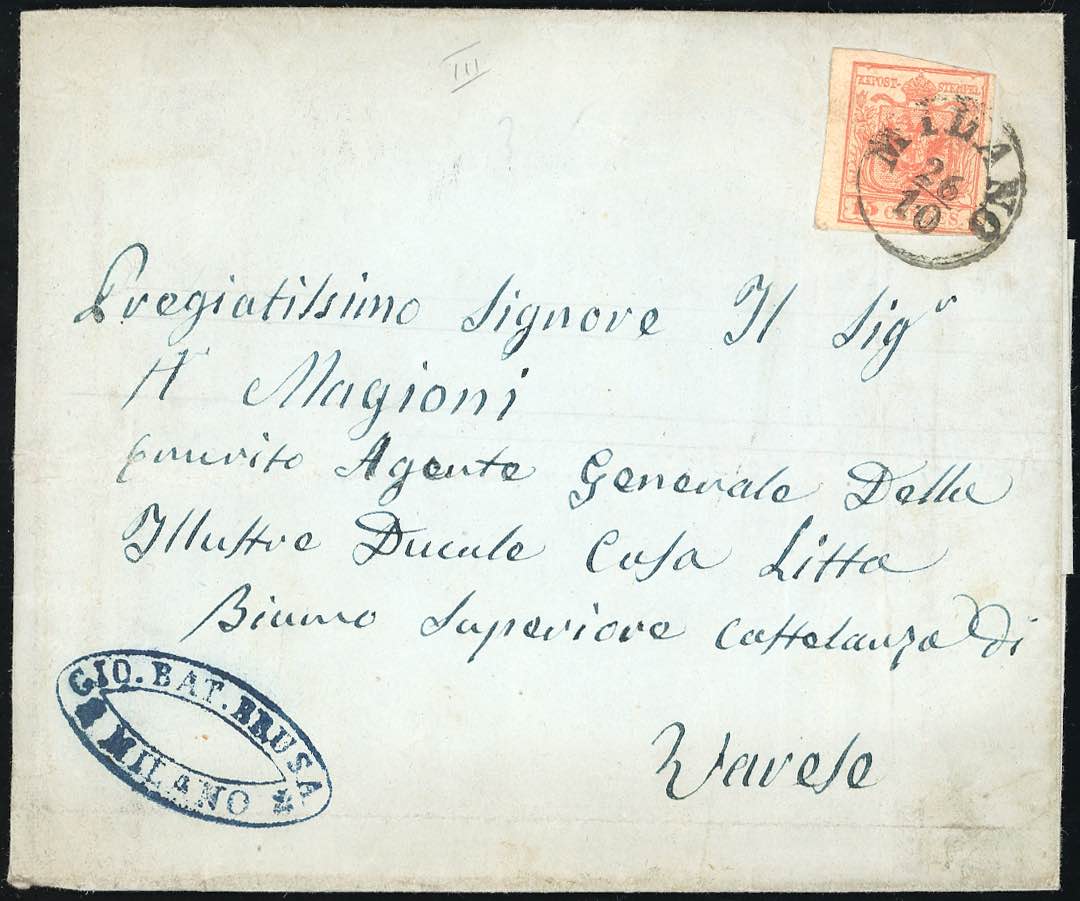 III
KKPOST-STEMPEL
15 CENTES.
MILANO
26
10
Pregiatissimo Signore Il Sigr
Magioni
emerito Agente Generale Della
Illustre Ducale Casa Litta
Biumo Superiore Castelanza Di
Varese
GIO. BAT. BRUSA
MILANO